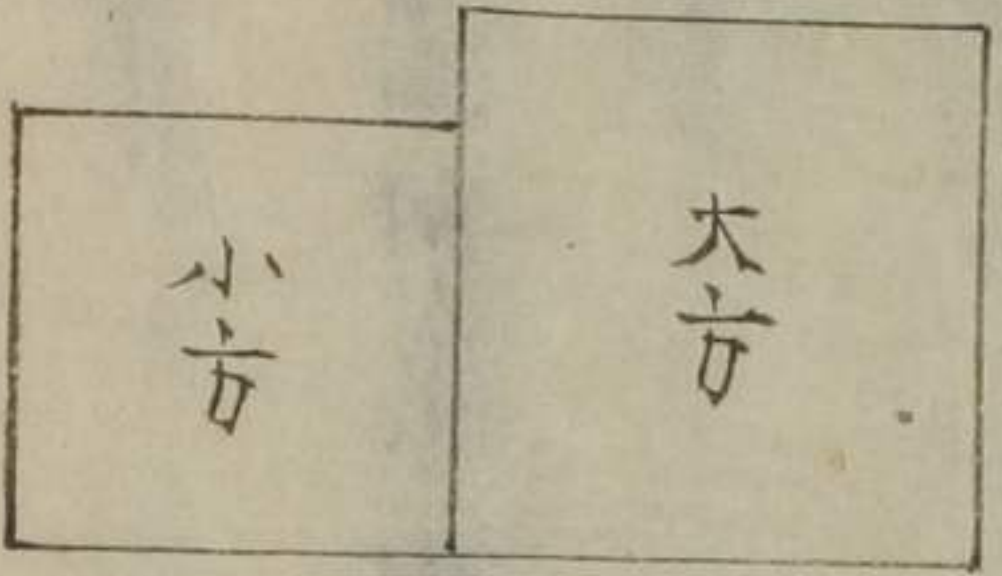 大方
小方